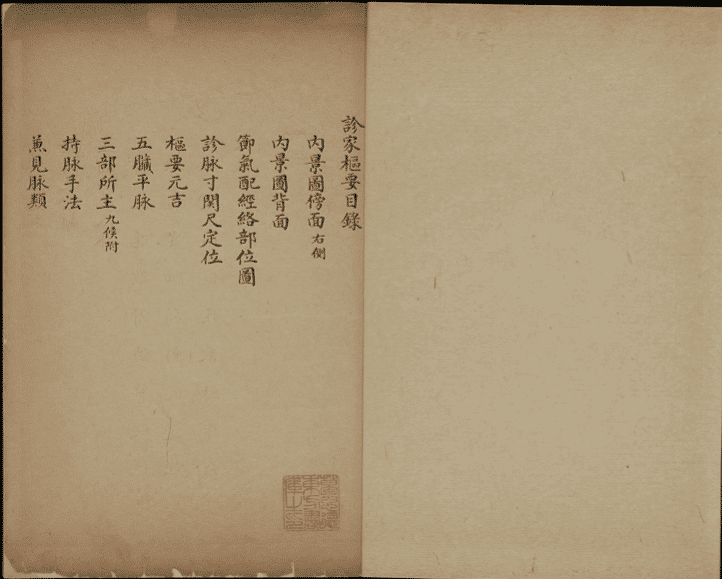 診家樞要目錄
內景圖傍面右側
內景圖背面
節氣配經絡部位圖
診脉寸関尺定位
樞要元吉
五臟平脉
三部所主九候附
持脉手法
兼見脉類